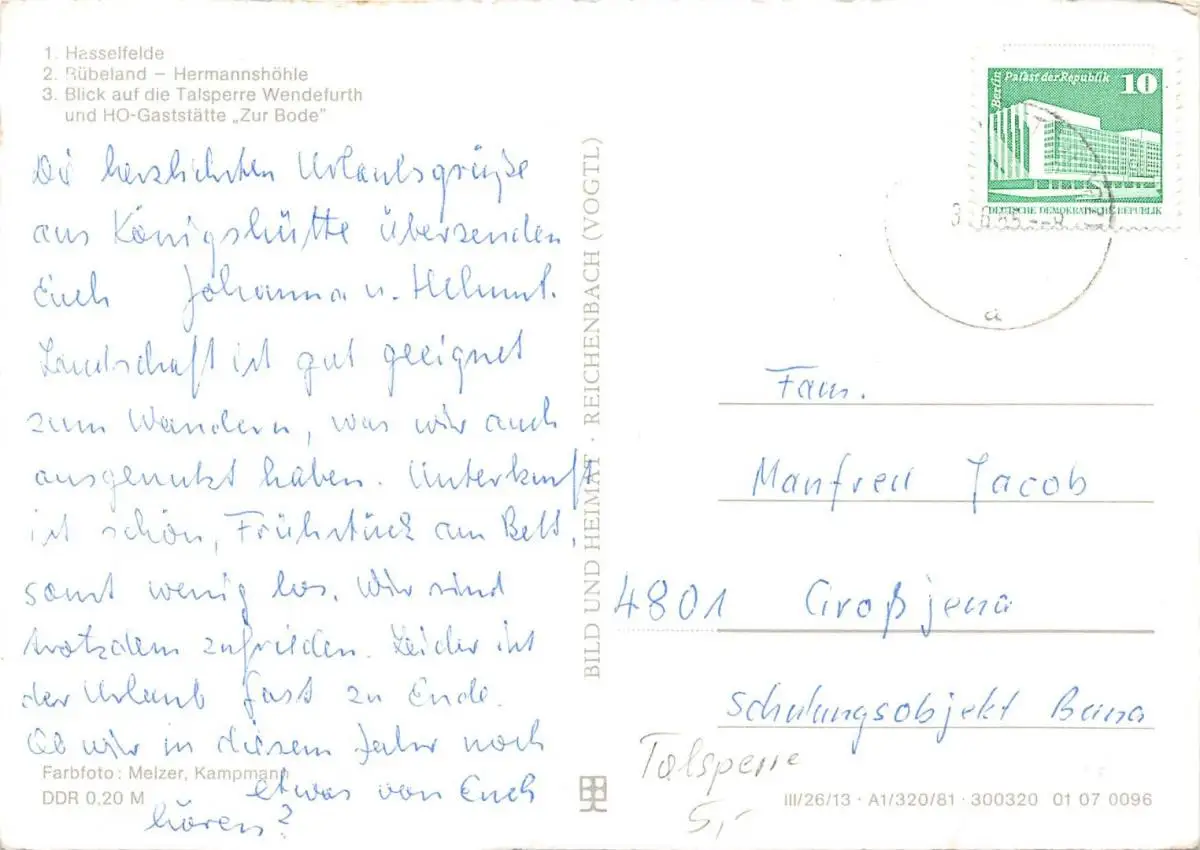 1. Hasselfelde
2. Rübeland – Hermannshöhle
3. Blick auf die Talsperre Wendefurth
und HO-Gaststätte „Zur Bode"
Die herzlichsten Urlaubsgrüße
aus Königshütte übersenden
Euch Johanna u. Helmut.
Landschaft ist gut geeignet
zum Wandern, was wir auch
ausgenutzt haben. Unterkunft
ist schön, Frühstück am Bett,
sonst wenig los. Wir sind
trotzdem zufrieden. Leider ist
der Urlaub fast zu Ende.
Ob wir in diesem Jahr noch
etwas von Euch
hören?
Farbfoto: Melzer, Kampmann
DDR 0,20 M
BILD UND HEIMAT · REICHENBACH (VOGTL)
Berlin Palast der Republik 10
DEUTSCHE DEMOKRATISCHE REPUBLIK
a
Fam.
Manfred Jacob
4801 Großjena
Schulungsobjekt Buna
Talsperre
5,-
III/26/13 · A1/320/81 · 300320 01 07 0096